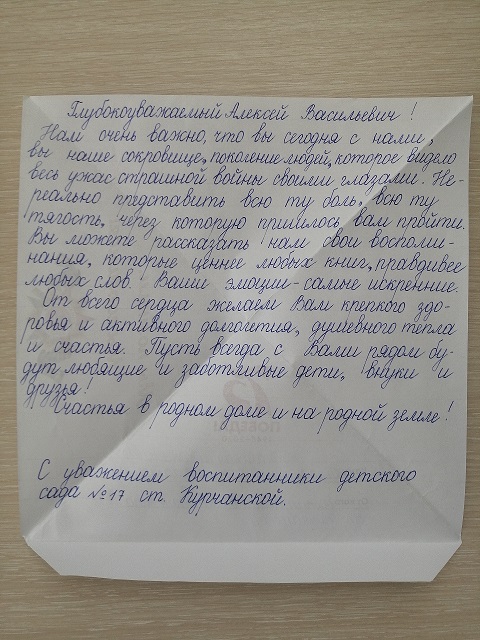 Глубокоуважаемый Алексей Васильевич!
Нам очень важно, что вы сегодня с нами,
вы наше сокровище, поколение людей, которое видело
весь ужас страшной войны своими глазами. Не-
реально представить всю ту боль, всю ту
тягость, через которую пришлось вам пройти.
Вы можете рассказать нам свои воспоми-
нания, которые ценнее любых книг, правдивее
любых слов. Ваши эмоции - самые искренние.
От всего сердца желаем Вам крепкого здо-
ровья и активного долголетия, душевного тепла
и счастья. Пусть всегда с Вами рядом бу-
дут любящие и заботливые дети, внуки и
друзья!
Счастья в родном доме и на родной земле!
С уважением воспитанники детского
сада №17 ст. Курчанской.